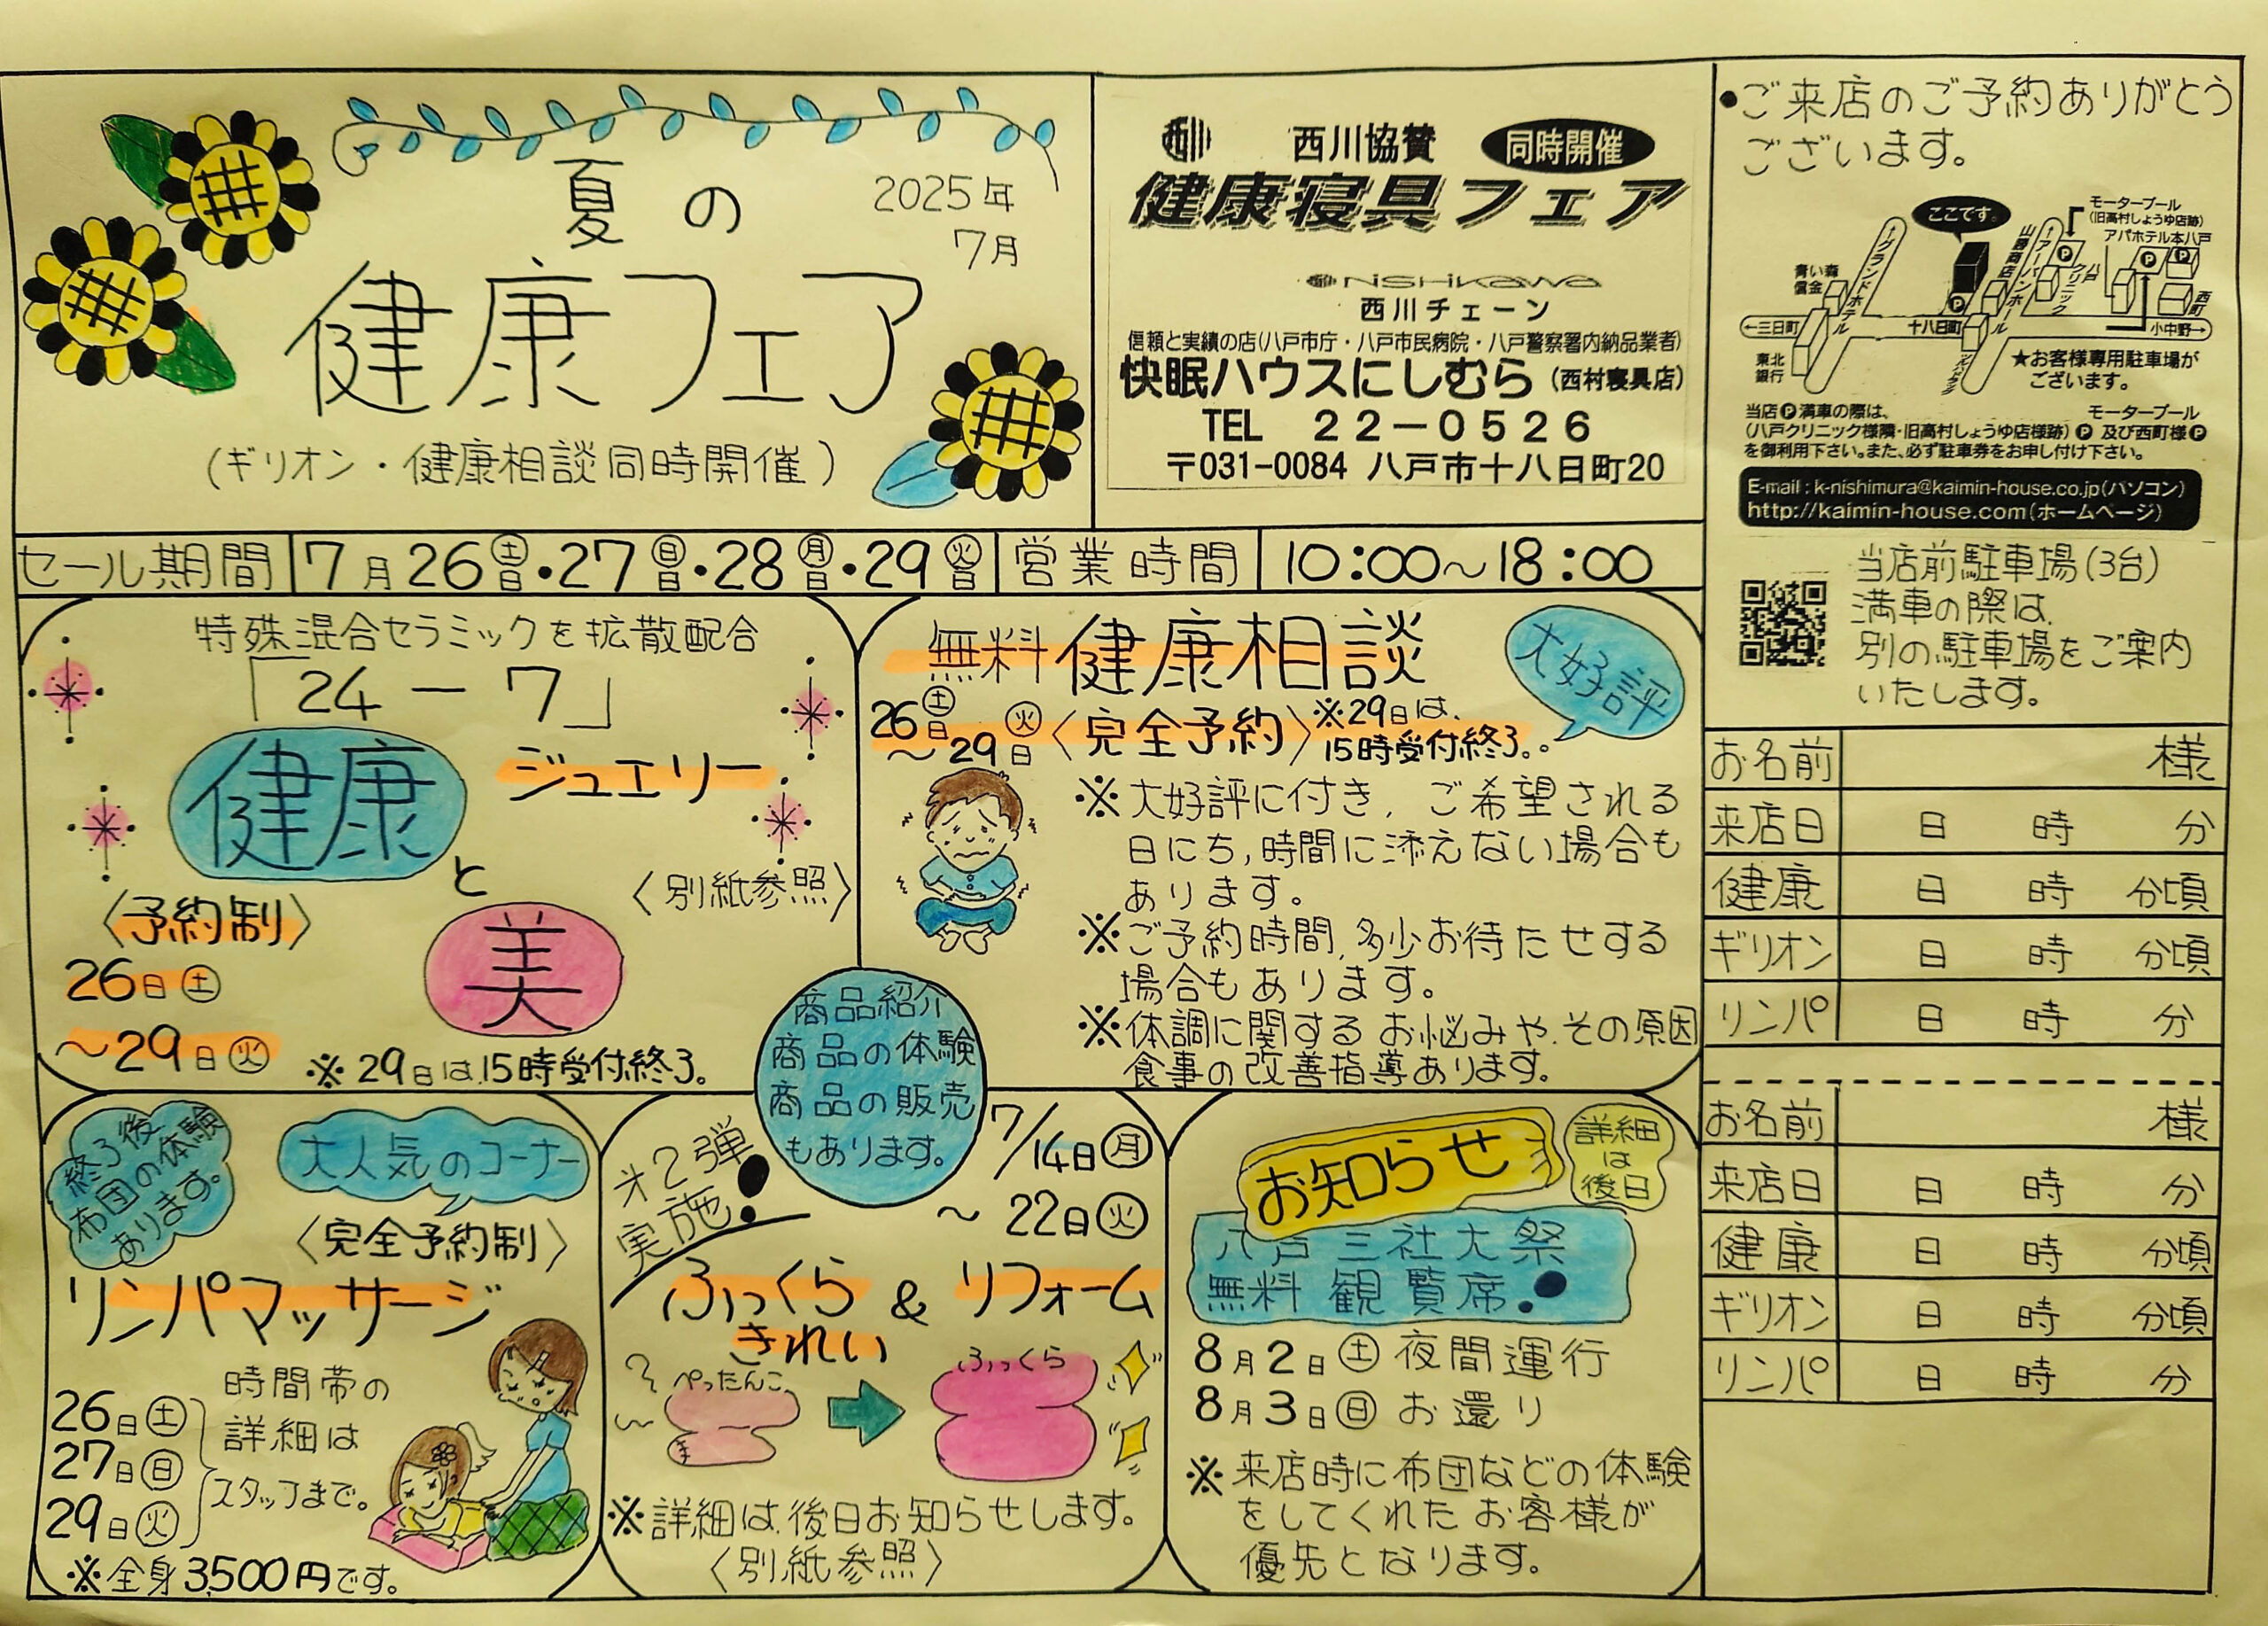 夏の
2025年
7月
健康フェア
(ギリオン・健康相談同時開催)
西川 西川協賛 同時開催
健康寝具フェア
nishikawa
西川チェーン
信頼と実績の店(八戸市庁・八戸市民病院・八戸警察署内納品業者)
快眠ハウスにしむら(西村寝具店)
TEL 22-0526
〒031-0084 八戸市十八日町20
・ご来店のご予約ありがとう
ございます。
ここです。
モータープール
(旧高村しょうゆ店跡)
アパホテル本八戸
←グランドホテル
山勝商店
←アーバンホール
八戸クリニック
西町
青い森
信金
←三日町
十八日町
小中野→
東北
銀行
★お客様専用駐車場が
ございます。
当店Ⓟ満車の際は、 モータープール
(八戸クリニック様隣・旧高村しょうゆ店様跡)Ⓟ及び西町様Ⓟ
を御利用下さい。また、必ず駐車券をお申し付け下さい。
E-mail:k-nishimura@kaimin-house.co.jp(パソコン)
http://kaimin-house.com(ホームページ)
当店前駐車場(3台)
満車の際は、
別の駐車場をご案内
いたします。
セール期間 7月26㊏日・27㊐日・28㊊日・29㊋日 営業時間 10:00〜18:00
特殊混合セラミックを拡散配合
「24-7」
健康 ジュエリー
と
美
〈別紙参照〉
〈予約制〉
26日㊏
〜29日㊋
※29日は、15時受付終了。
無料健康相談
大好評
26日㊏〜29日㊋〈完全予約〉※29日は、
15時受付終了。
※大好評に付き、ご希望される
日にち,時間に添えない場合も
あります。
※ご予約時間、多少お待たせする
場合もあります。
※体調に関するお悩みや、その原因
食事の改善指導あります。
商品紹介
商品の体験
商品の販売
もあります。
終了後
布団の体験
あります。
大人気のコーナー
〈完全予約制〉
リンパマッサージ
26日㊏
27日㊐
29日㊋
時間帯の
詳細は
スタッフまで。
※全身3,500円です。
㐧2弾
実施!
7/14日㊊
〜22日㊋
ふっくら & リフォーム
きれい
ぺったんこ
ふっくら
※詳細は、後日お知らせします。
〈別紙参照〉
お知らせ
詳細
は
後日
八戸三社大祭
無料観覧席!
8月2日㊏夜間運行
8月3日㊐お還り
※来店時に布団などの体験
をしてくれたお客様が
優先となります。
お名前 様
来店日 日 時 分
健康 日 時 分頃
ギリオン 日 時 分頃
リンパ 日 時 分
お名前 様
来店日 日 時 分
健康 日 時 分頃
ギリオン 日 時 分頃
リンパ 日 時 分